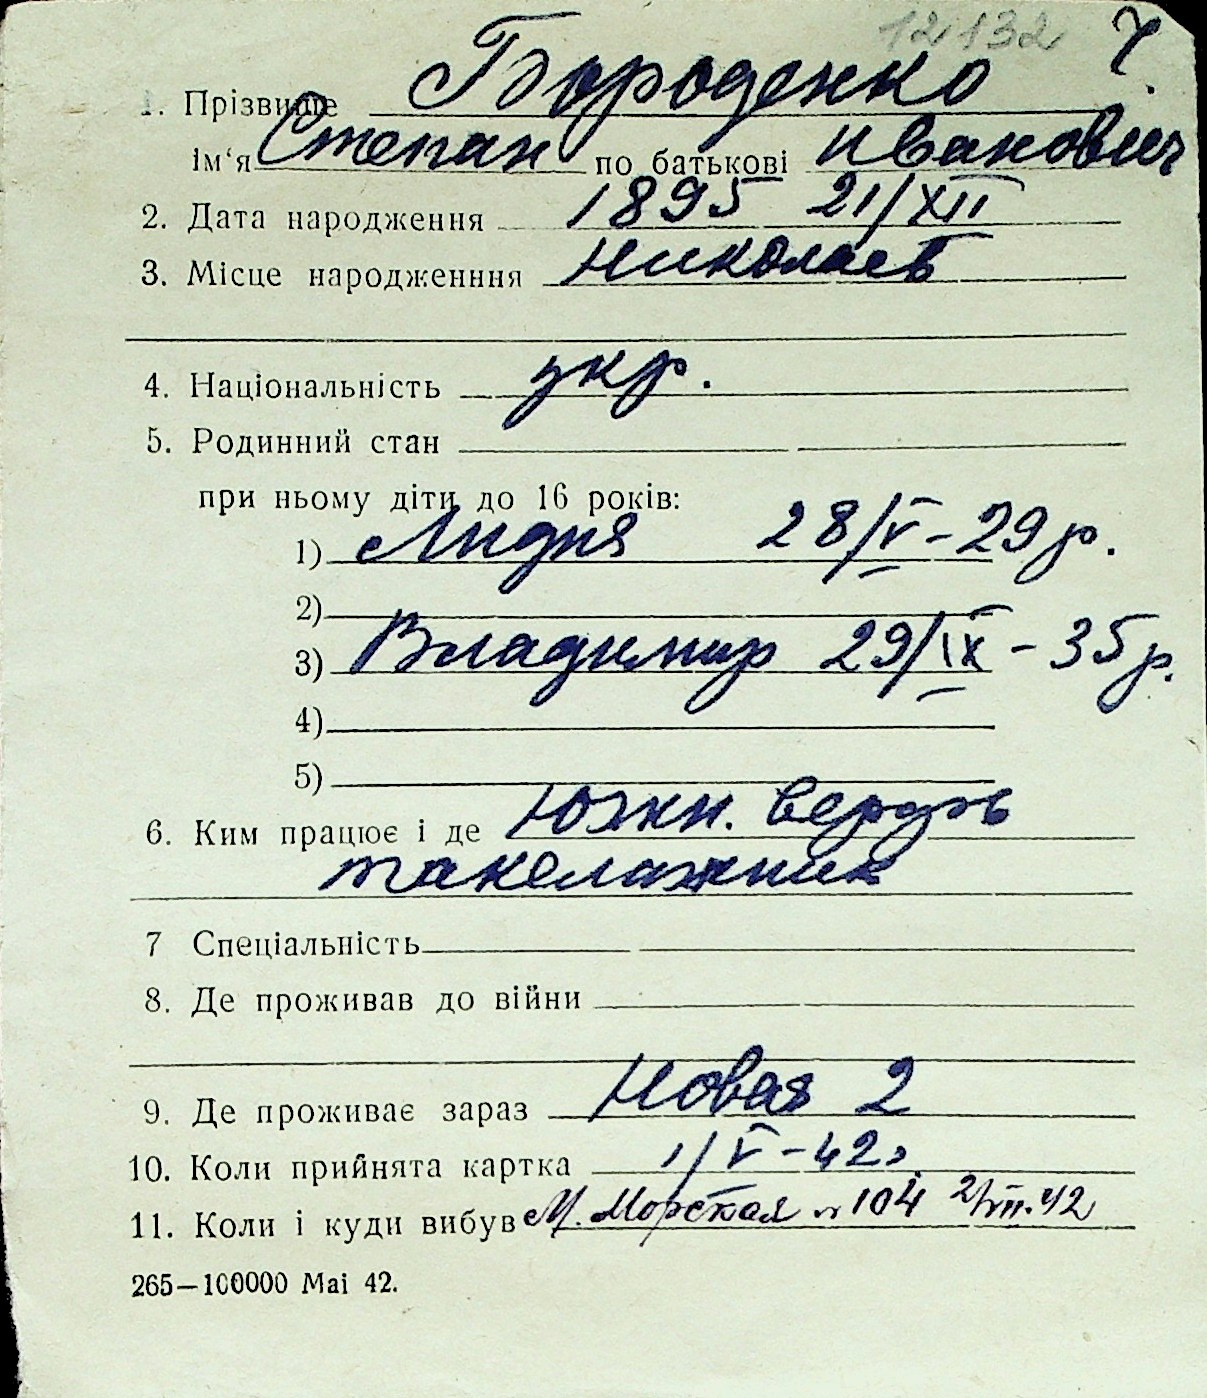 12132 7.
1. Прізвище Бороденко
Ім‘я Степан по батькові Иванович
2. Дата народження 1895 21/XII
3. Місце народженння Николаев
4. Національність укр.
5. Родинний стан
при ньому діти до 16 років:
1) Лидия 28/V-29 р.
2)
3) Владимир 29/IX - 35 р.
4)
5)
6. Ким працює і де Южн. верфь
такелажник
7 Спеціальність
8. Де проживав до війни
9. Де проживає зараз Новая 2
10. Коли прийнята картка 1/V-42г.
11. Коли і куди вибув М. Морская № 104 2/VII.42
265—100000 Mai 42.